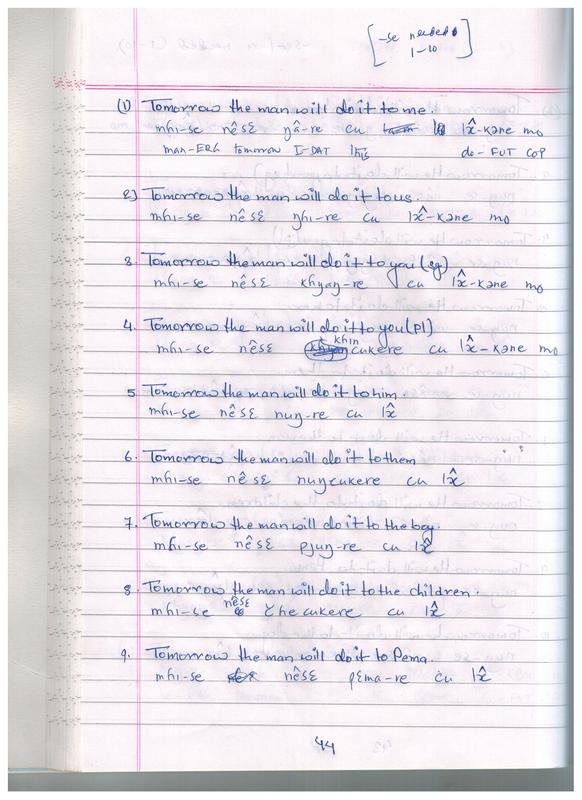 [-se needed
1-10]
(1) Tomorrow the man will do it to me.
mɦi-se nêsɛ ŋâ-re cu lx̂-kəne mo
man-ERG tomorrow I-DAT this do-FUT COP
2) Tomorrow the man will do it to us.
mɦi-se nêsɛ ŋɦi-re cu lx̂-kəne mo
3. Tomorrow the man will do it to you (sg)
mɦi-se nêsɛ khyaŋ-re cu lx̂-kəne mo
4. Tomorrow the man will do it to you (pl)
khin
mɦi-se nêsɛ cukere cu lx̂-kəne mo
5. Tomorrow the man will do it to him.
mɦi-se nêsɛ nuŋ-re cu lx̂
6. Tomorrow the man will do it to them
mɦi-se nêsɛ nuŋcukere cu lx̂
7. Tomorrow the man will do it to the boy.
mɦi-se nêsɛ pjuŋ-re cu lx̂
8. Tomorrow the man will do it to the children.
nêsɛ
mɦi-se cukere cu lx̂
9. Tomorrow the man will do it to Pema.
mɦi-se nêsɛ pɛma-re cu lx̂
44